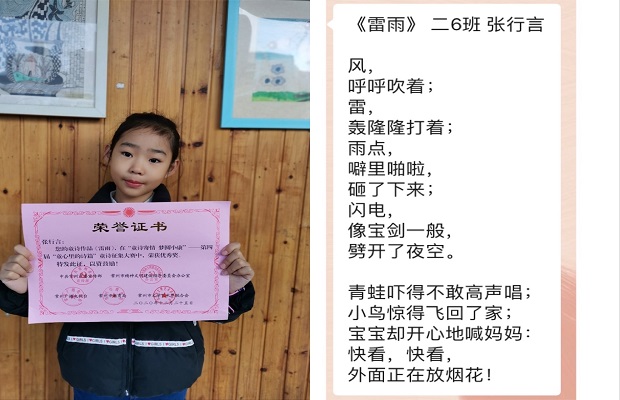 荣誉证书
张行言：
您的童诗作品《雷雨》，在“童诗寄情 梦圆小康”——第四
届“童心里的诗篇”童诗征集大赛中，荣获优秀奖。
特发此证，以资鼓励！
《雷雨》 二6班 张行言
风，
呼呼吹着；
雷，
轰隆隆打着；
雨点，
噼里啪啦，
砸了下来；
闪电，
像宝剑一般，
劈开了夜空。
青蛙吓得不敢高声唱；
小鸟惊得飞回了家；
宝宝却开心地喊妈妈：
快看，快看，
外面正在放烟花！